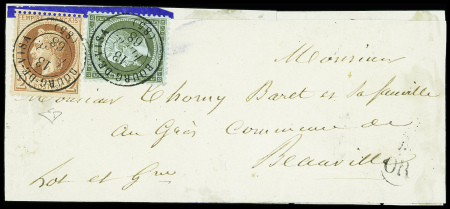 EMPIRE
BOURG-DE-VISA
13
68
(80)
BOURG-DE-VISA
13
68
(80)
Monsieur
Monsieur Thorny Baret et sa famille
au Grès Commune de
Beauville
Lot et Gne
OR